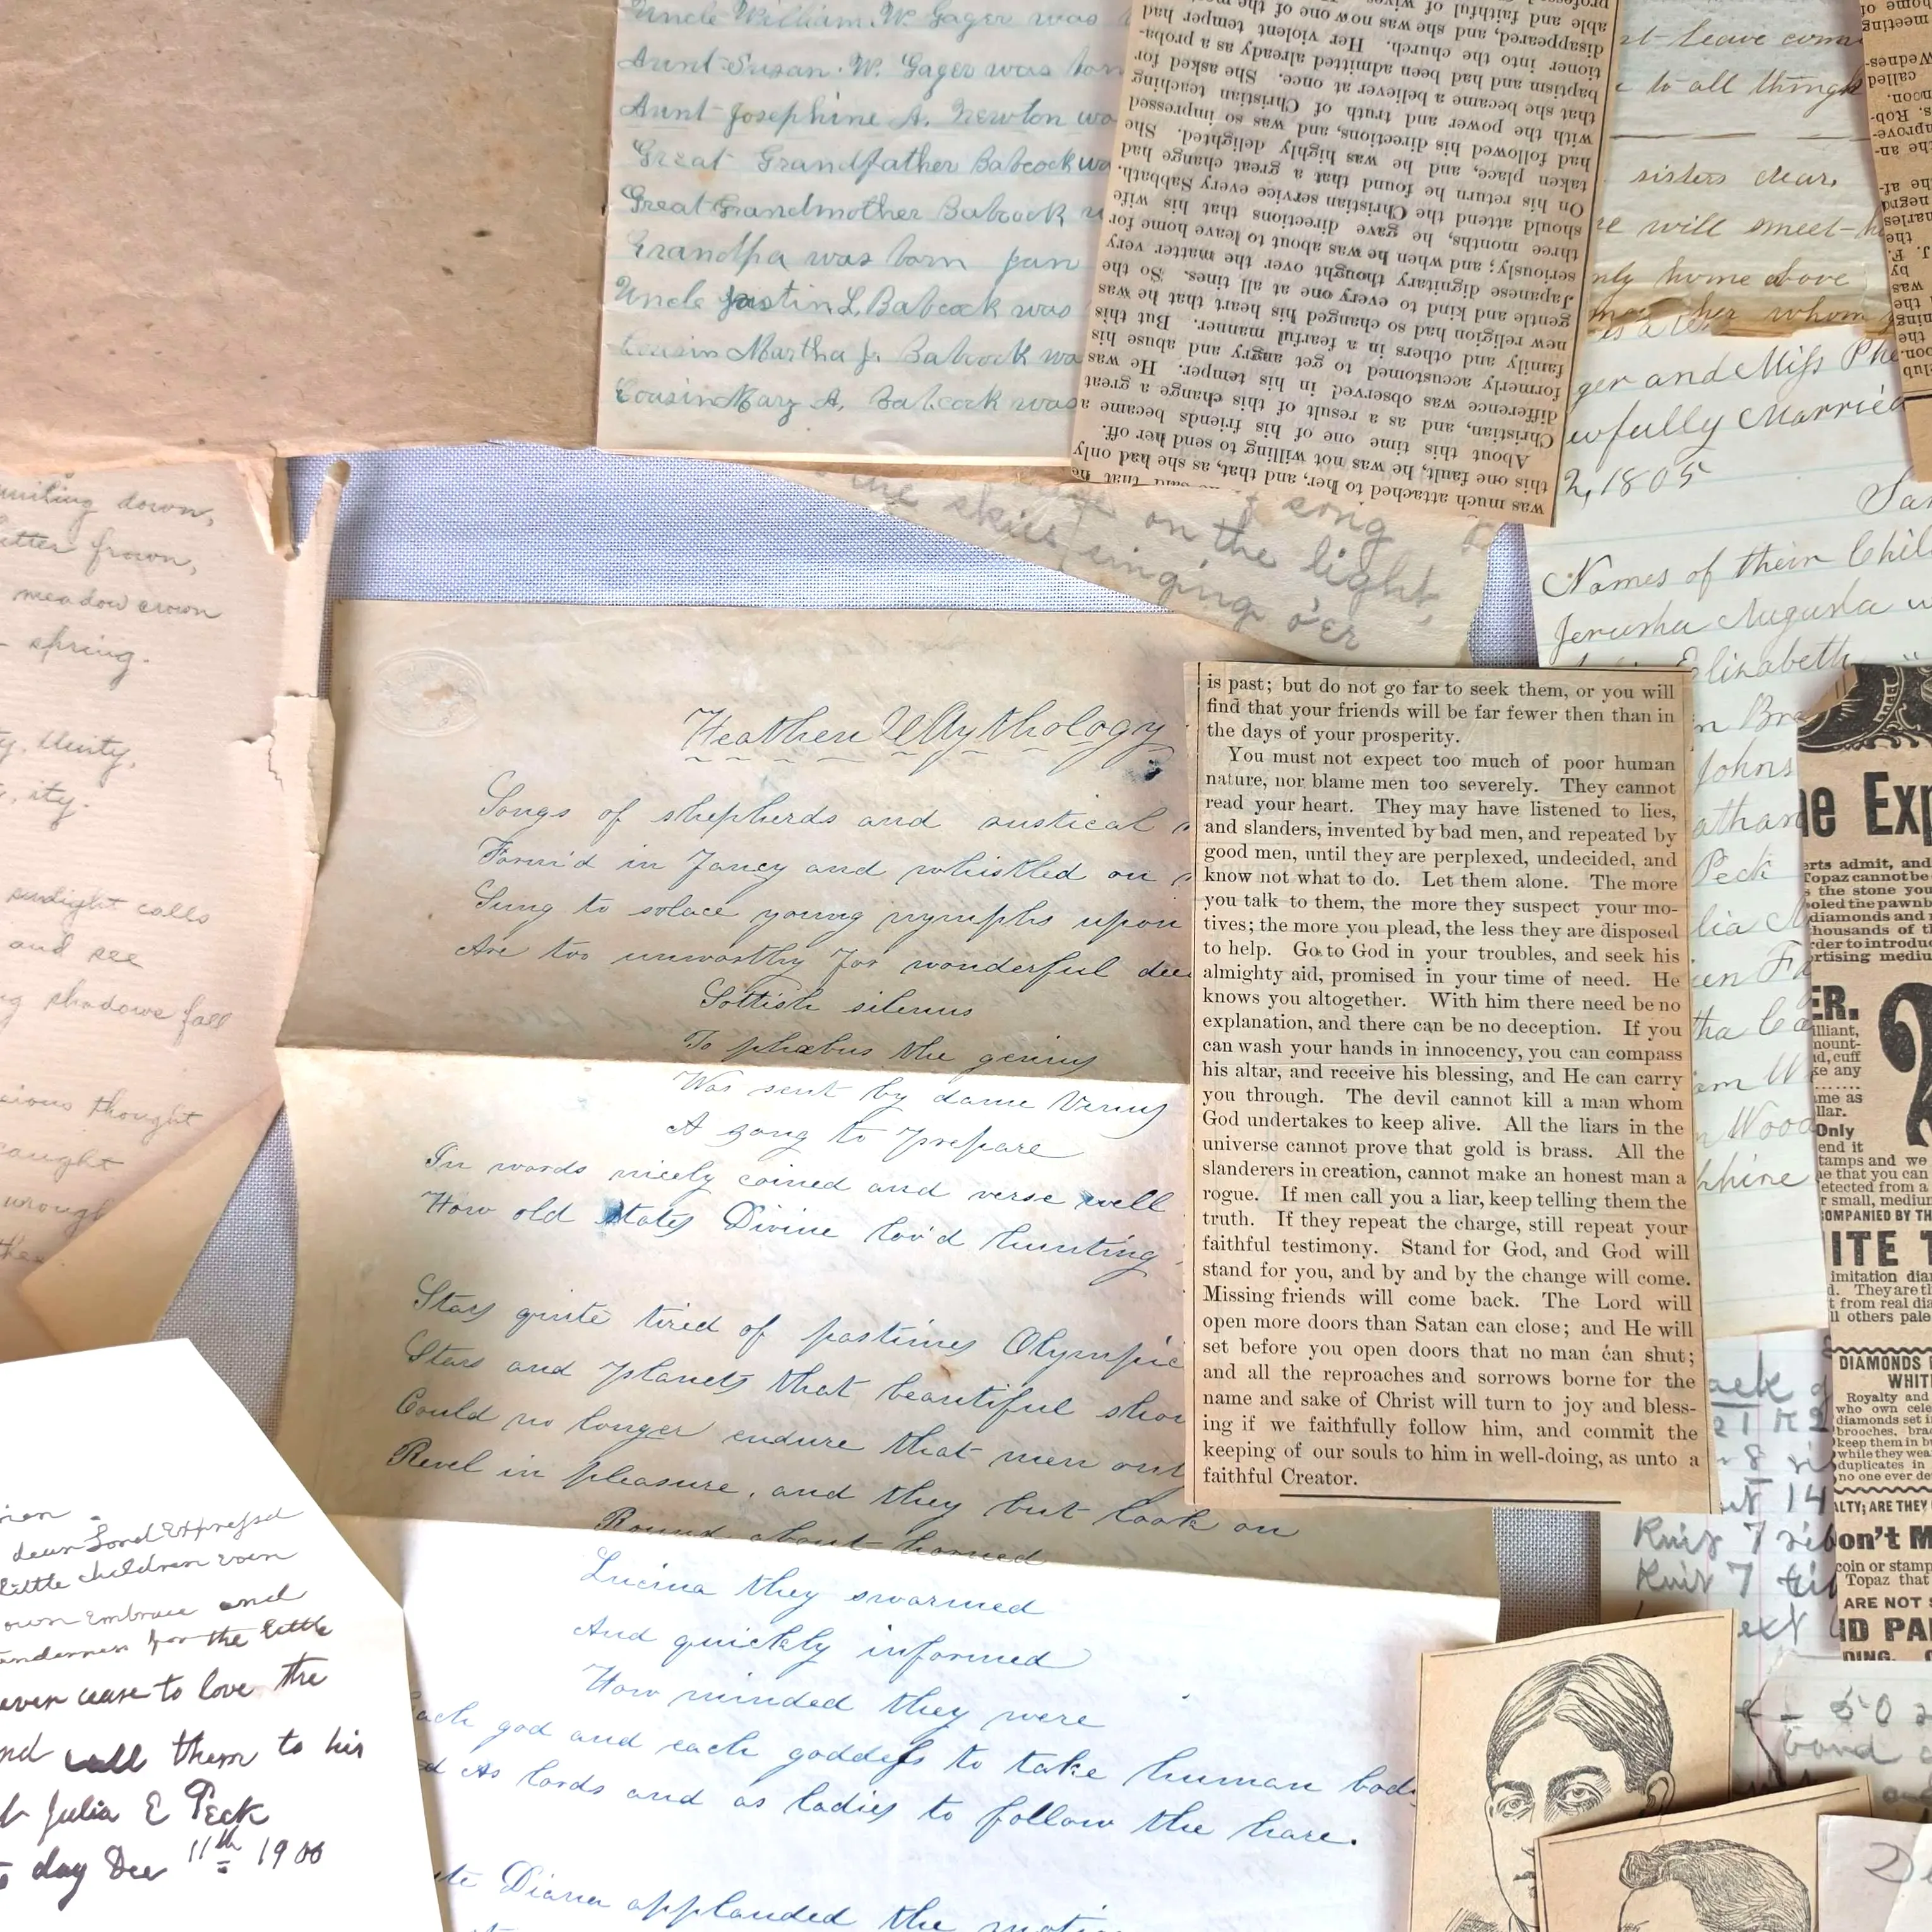 Uncle William. W. Gager was
Aunt Susan. W. Gager was born
Aunt Josephine A. Newton was
Great Grandfather Babcock was
Great Grandmother Babcock
Grandpa was born Jan
Uncle Justin L. Babcock was
Cousin Martha J. Babcock was
Cousin Mary A. Babcock was
was much attached to her, and that, as she had only
this one fault, he was not willing to send her off.
About this time one of his friends became a
Christian, and as a result of this change a great
difference was observed in his temper. He was
formerly accustomed to get angry and abuse his
family and others in a fearful manner. But this
new religion had so changed his heart that he was
gentle and kind to every one at all times. So the
Japanese dignitary thought over the matter very
seriously; and when he was about to leave home for
three months, he gave directions that his wife
should attend the Christian service every Sabbath.
On his return he found that a great change had
taken place, and he was highly delighted. She
had followed his directions, and was so impressed
with the power and truth of Christian teaching
that she became a believer at once. She asked for
baptism and had been admitted already as a proba-
tioner into the church. Her violent temper had
disappeared, and she was now one of the
able and faithful of
leave
to all things
sisters dear,
will meet
home above
her whom
ger and Miss
wfully Married
2, 1805
Names of their Chil
Jerusha Augusta
Elizabeth
Johns
athan
Peck
lia
Wood
phine
song
on the light,
the skies singing o'er
down,
itter frown,
meadow crown
spring.
ty, Unity,
ity.
sunlight calls
and see
shadows fall
cious thought
caught
wrough
Heathen Mythology
Songs of shepherds and rustical
Form'd in fancy and whistled on
Sung to solace young nymphs upon
Are too unworthy for wonderful dee
Sottish silenus
To phœbus the genius
Was sent by dame Venus
A song to prepare
In words nicely coined and verse well
How old states Divine lov'd hunting
Stars quite tired of pastimes Olympic
Stars and planets that beautiful sho
Could no longer endure that men onl
Revel in pleasure, and they but look on
Round about horned
Lucina they swarmed
And quickly informed
How minded they were
ach god and each goddess to take human bod
d As lords and as ladies to follow the hare.
Diana applauded the motio
is past; but do not go far to seek them, or you will
find that your friends will be far fewer then than in
the days of your prosperity.
You must not expect too much of poor human
nature, nor blame men too severely. They cannot
read your heart. They may have listened to lies,
and slanders, invented by bad men, and repeated by
good men, until they are perplexed, undecided, and
know not what to do. Let them alone. The more
you talk to them, the more they suspect your mo-
tives; the more you plead, the less they are disposed
to help. Go to God in your troubles, and seek his
almighty aid, promised in your time of need. He
knows you altogether. With him there need be no
explanation, and there can be no deception. If you
can wash your hands in innocency, you can compass
his altar, and receive his blessing, and He can carry
you through. The devil cannot kill a man whom
God undertakes to keep alive. All the liars in the
universe cannot prove that gold is brass. All the
slanderers in creation, cannot make an honest man a
rogue. If men call you a liar, keep telling them the
truth. If they repeat the charge, still repeat your
faithful testimony. Stand for God, and God will
stand for you, and by and by the change will come.
Missing friends will come back. The Lord will
open more doors than Satan can close; and He will
set before you open doors that no man can shut;
and all the reproaches and sorrows borne for the
name and sake of Christ will turn to joy and bless-
ing if we faithfully follow him, and commit the
keeping of our souls to him in well-doing, as unto a
faithful Creator.
e Exp
erts admit, and
Topaz cannot be
s the stone you
ooled the pawnb
diamonds and
housands of th
rder to introduc
ertising mediu
ER.
illiant,
mount-
d, cuff
ke any
me as
llar.
Only
end it
tamps and we
e that you can
etected from a
r small, medium
OMPANIED BY TH
ITE T
imitation dia
d. They are th
t from real dia
ll others pale
DIAMONDS
WHIT
Royalty and
who own cele
diamonds set i
brooches, brac
keep them in b
while they wea
duplicates in
no one ever de
ALTY; ARE THEY
on't M
coin or stamp
Topaz that
ARE NOT
ID PA
DING.
Knit 7
Knit 7
50
band
dear Lord Expressd
little children Even
own Embrace and
tenderness for the little
ever cease to love the
nd call them to his
Julia E Peck
to day Dec 11th 1900